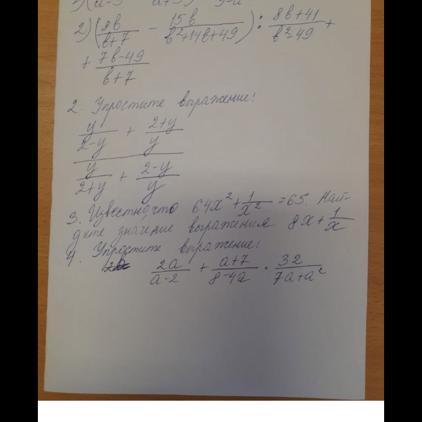 2) (8b/(b+7) - 15b/(b²+14b+49)) : (8b+41)/(b²-49) +
+ (7b-49)/(b+7)
2. Упростите выражение:
(y/(2-y) + (2+y)/y) / (y/(2+y) + (2-y)/y)
3. Известно что 64x² + 1/x² = 65 Най-
дите значение выражения 8x + 1/x
4. Упростите выражение:
2a/(a-2) + (a+7)/(8-4a) · 32/(7a+a²)